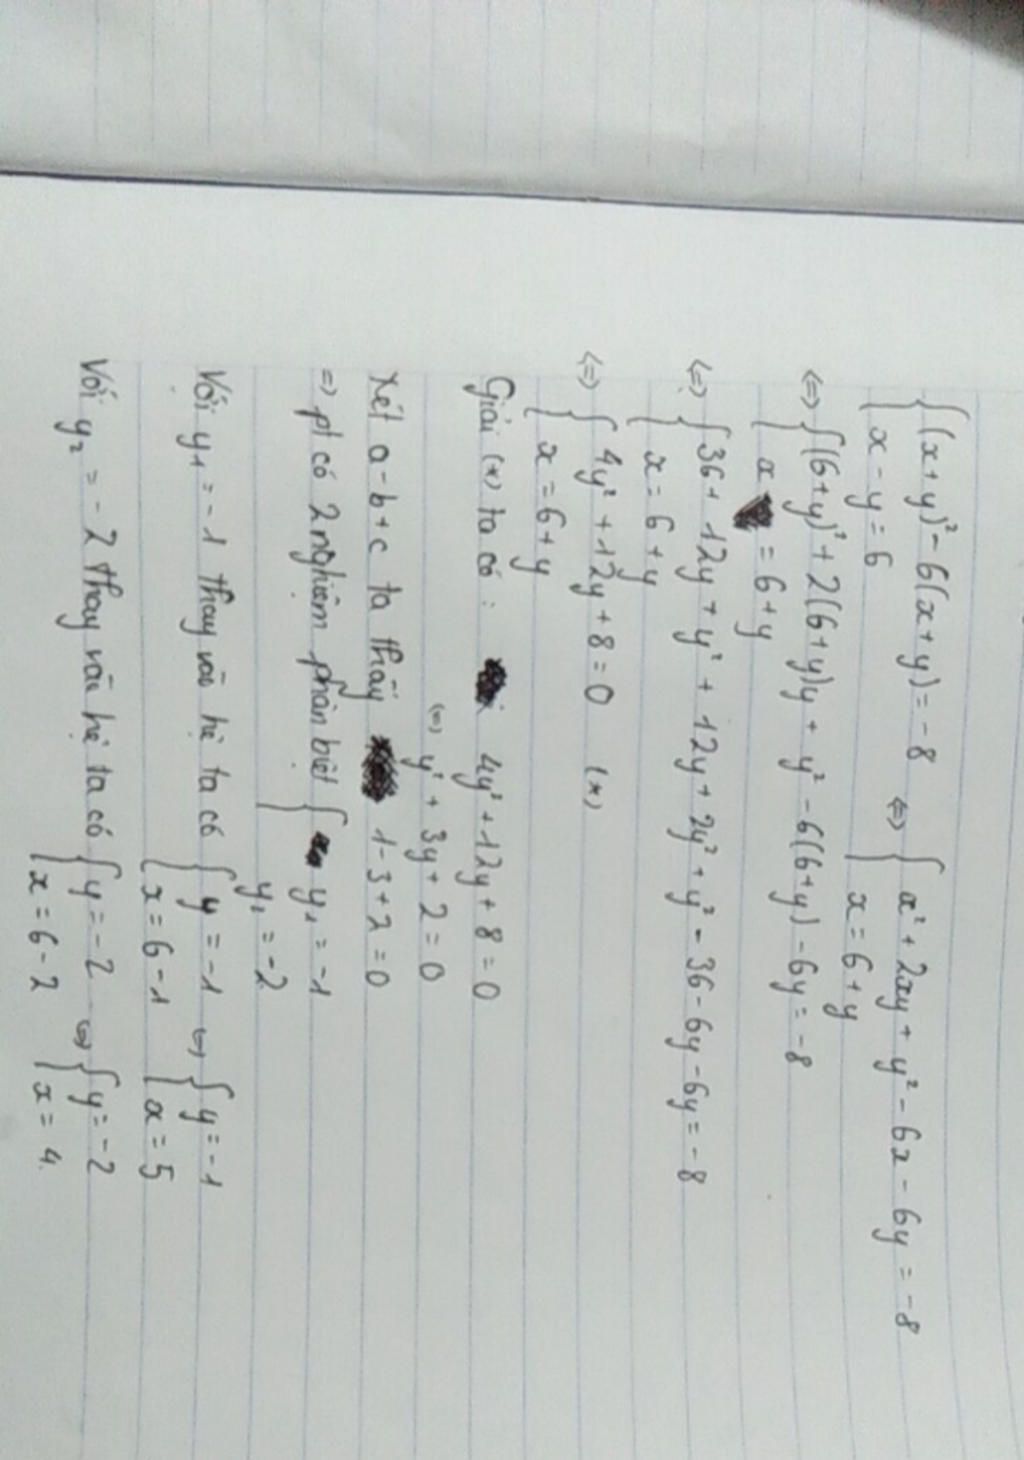 { (x+y)² - 6(x+y) = -8 <=> { x² + 2xy + y² - 6x - 6y = -8
{ x - y = 6 { x = 6+y
<=> { (6+y)² + 2(6+y)y + y² - 6(6+y) - 6y = -8
{ x = 6+y
<=> { 36 + 12y + y² + 12y + 2y² + y² - 36 - 6y - 6y = -8
{ x = 6+y
<=> { 4y² + 12y + 8 = 0 (*)
{ x = 6+y
Giải (*) ta có : 4y² + 12y + 8 = 0
<=> y² + 3y + 2 = 0
Xét a-b+c ta thấy 1-3+2 = 0
=> pt có 2 nghiệm phân biệt { y₁ = -1
{ y₂ = -2
Với y₁ = -1 thay vào hệ ta có { y = -1 <=> { y = -1
{ x = 6-1 { x = 5
Với y₂ = -2 thay vào hệ ta có { y = -2 <=> { y = -2
{ x = 6-2 { x = 4.